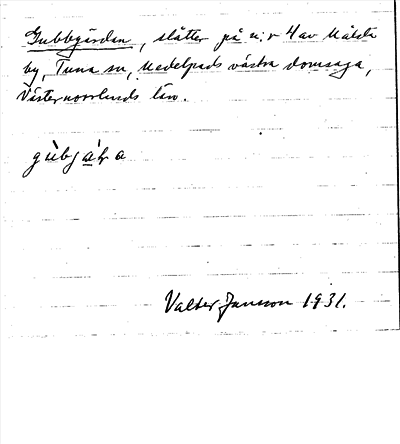 Gubbgården, slåtter på n:r 4 av Målsta
by, Tuna sn, Medelpads västra domsaga,
Västernorrlands län.
Valter Jansson 1931.